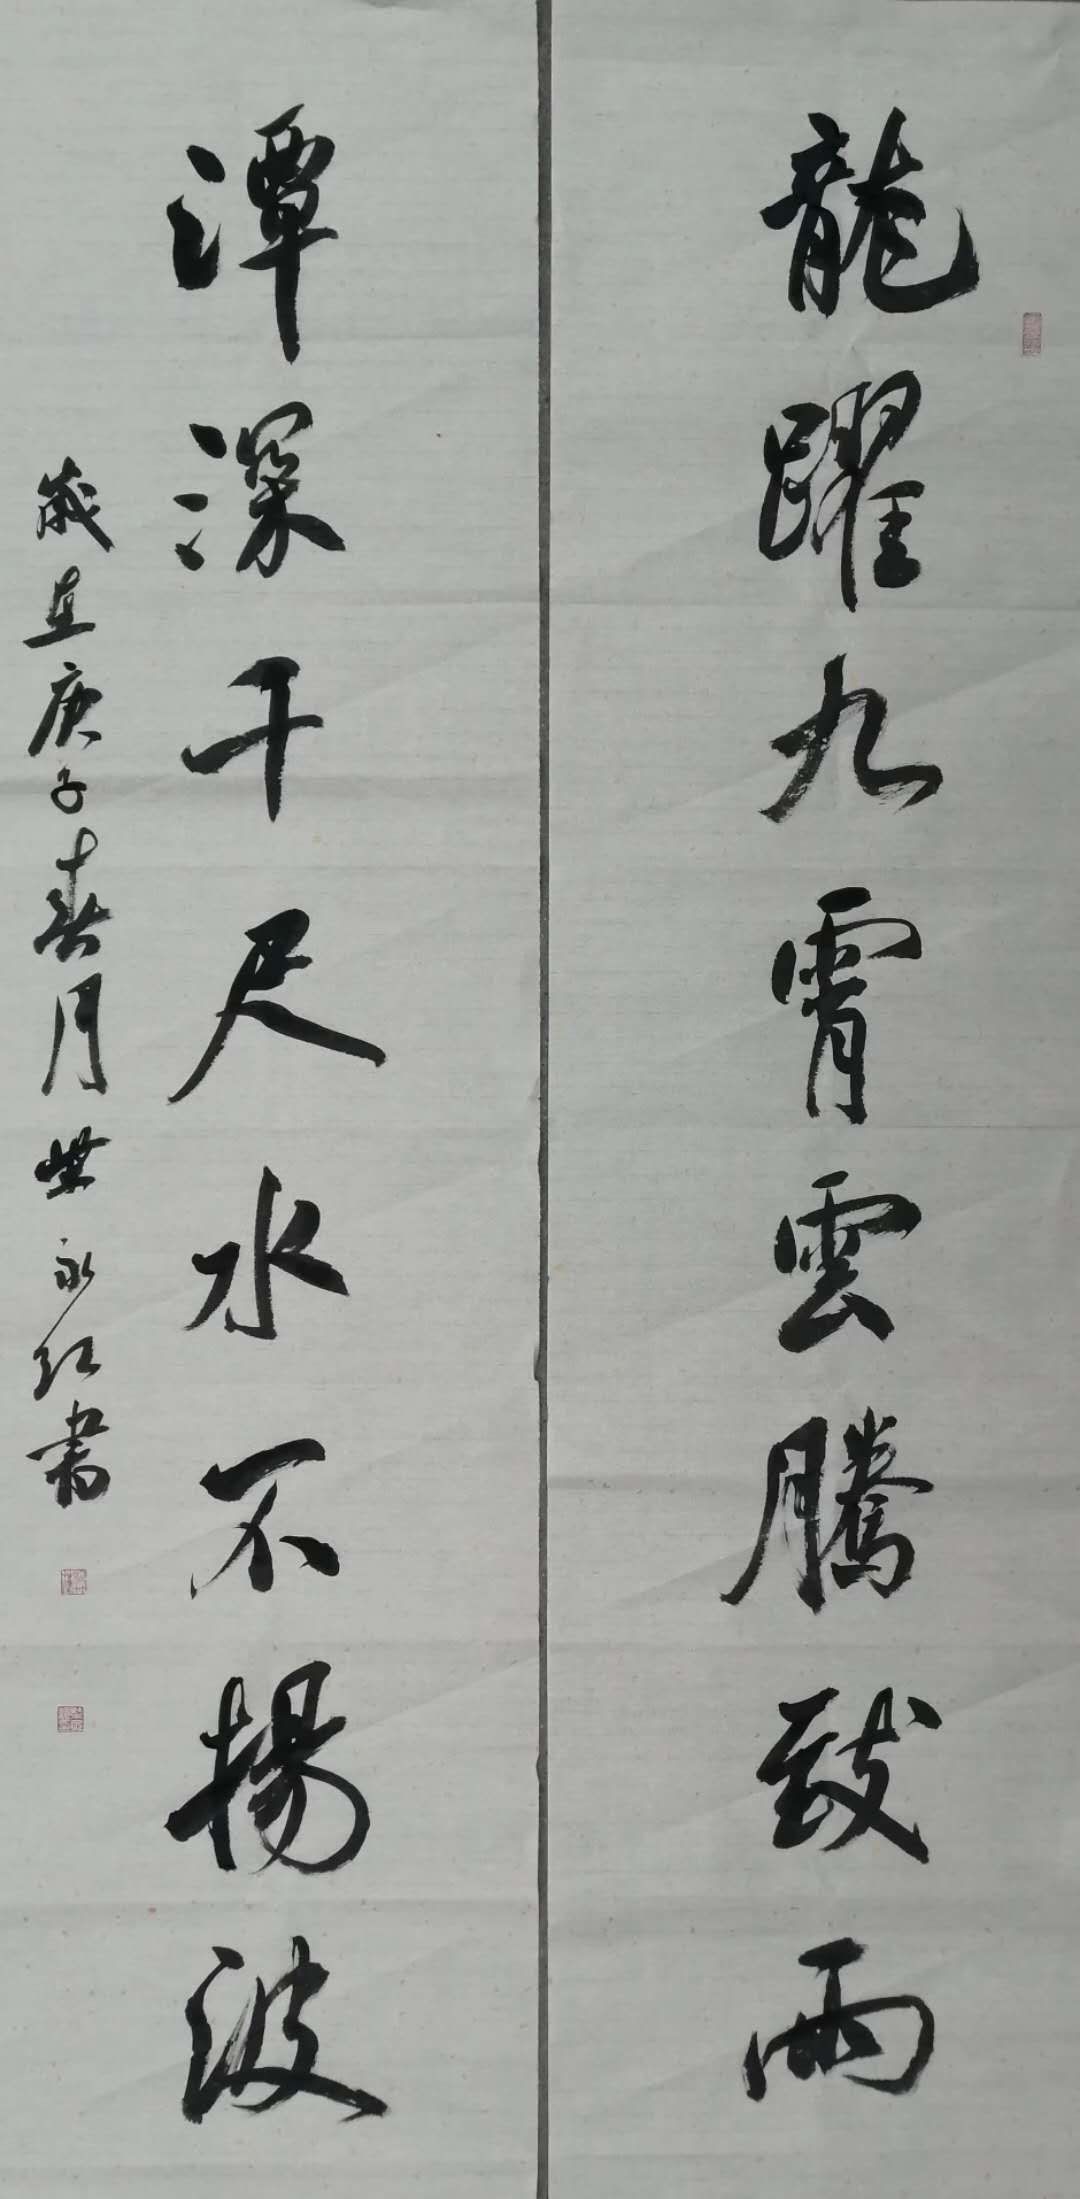 龍躍九霄雲騰致雨
潭深千尺水不揚波
歲在庚子春月柴永江書